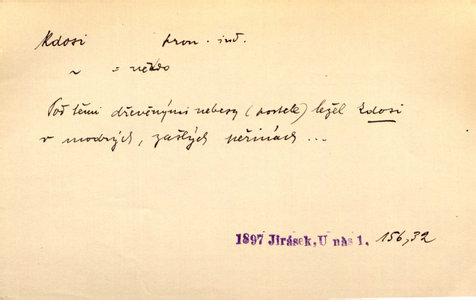 Kdosi pron. ind.
~ = někdo
Pod těmi dřevěnými nebesy (postele) ležel kdosi
v modrých, zašlých peřinách ...
1897 Jirásek, U nás 1, 156,32